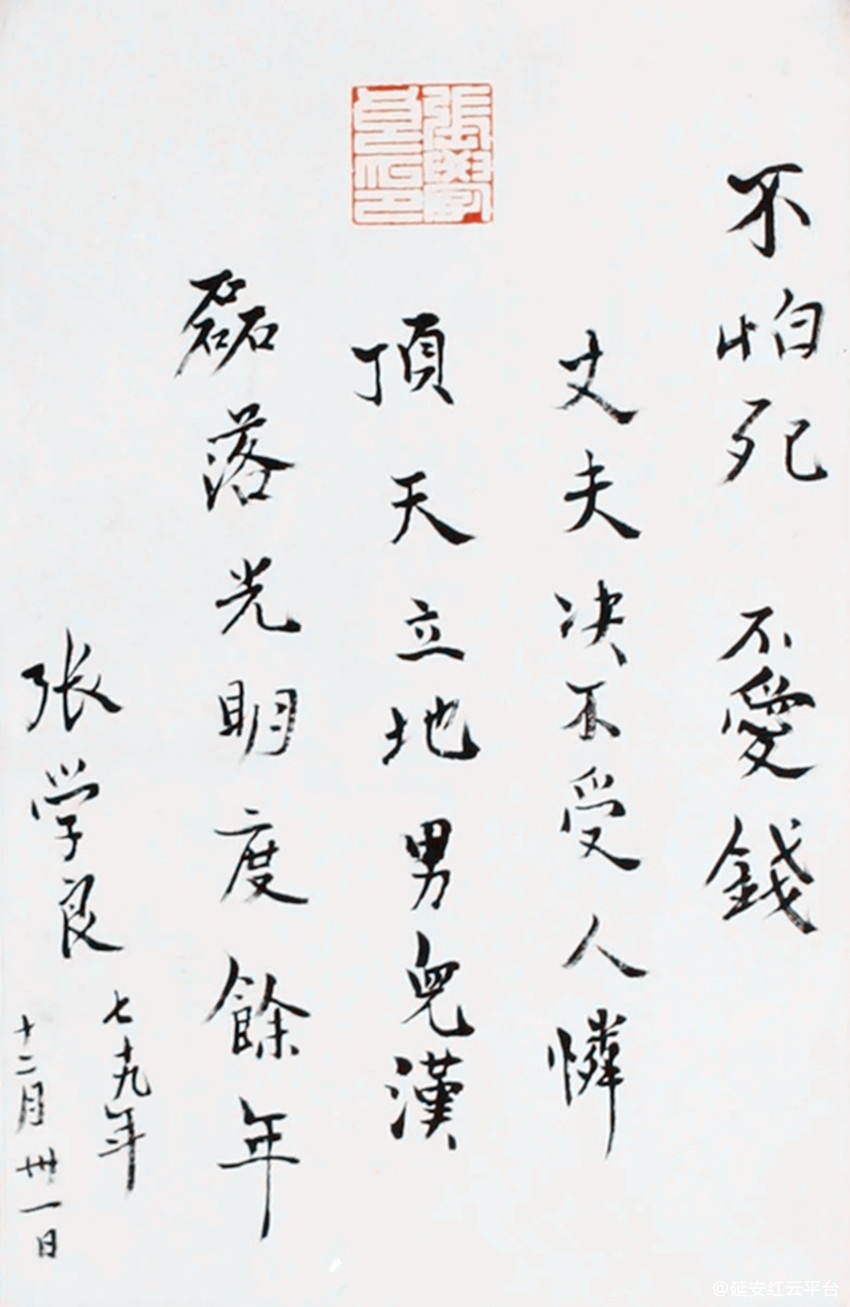 不怕死 不愛錢
丈夫决不受人憐
頂天立地男兒漢
磊落光明度餘年
张学良
七十九年
十二月卅一日
張學良印
@延安红云平台